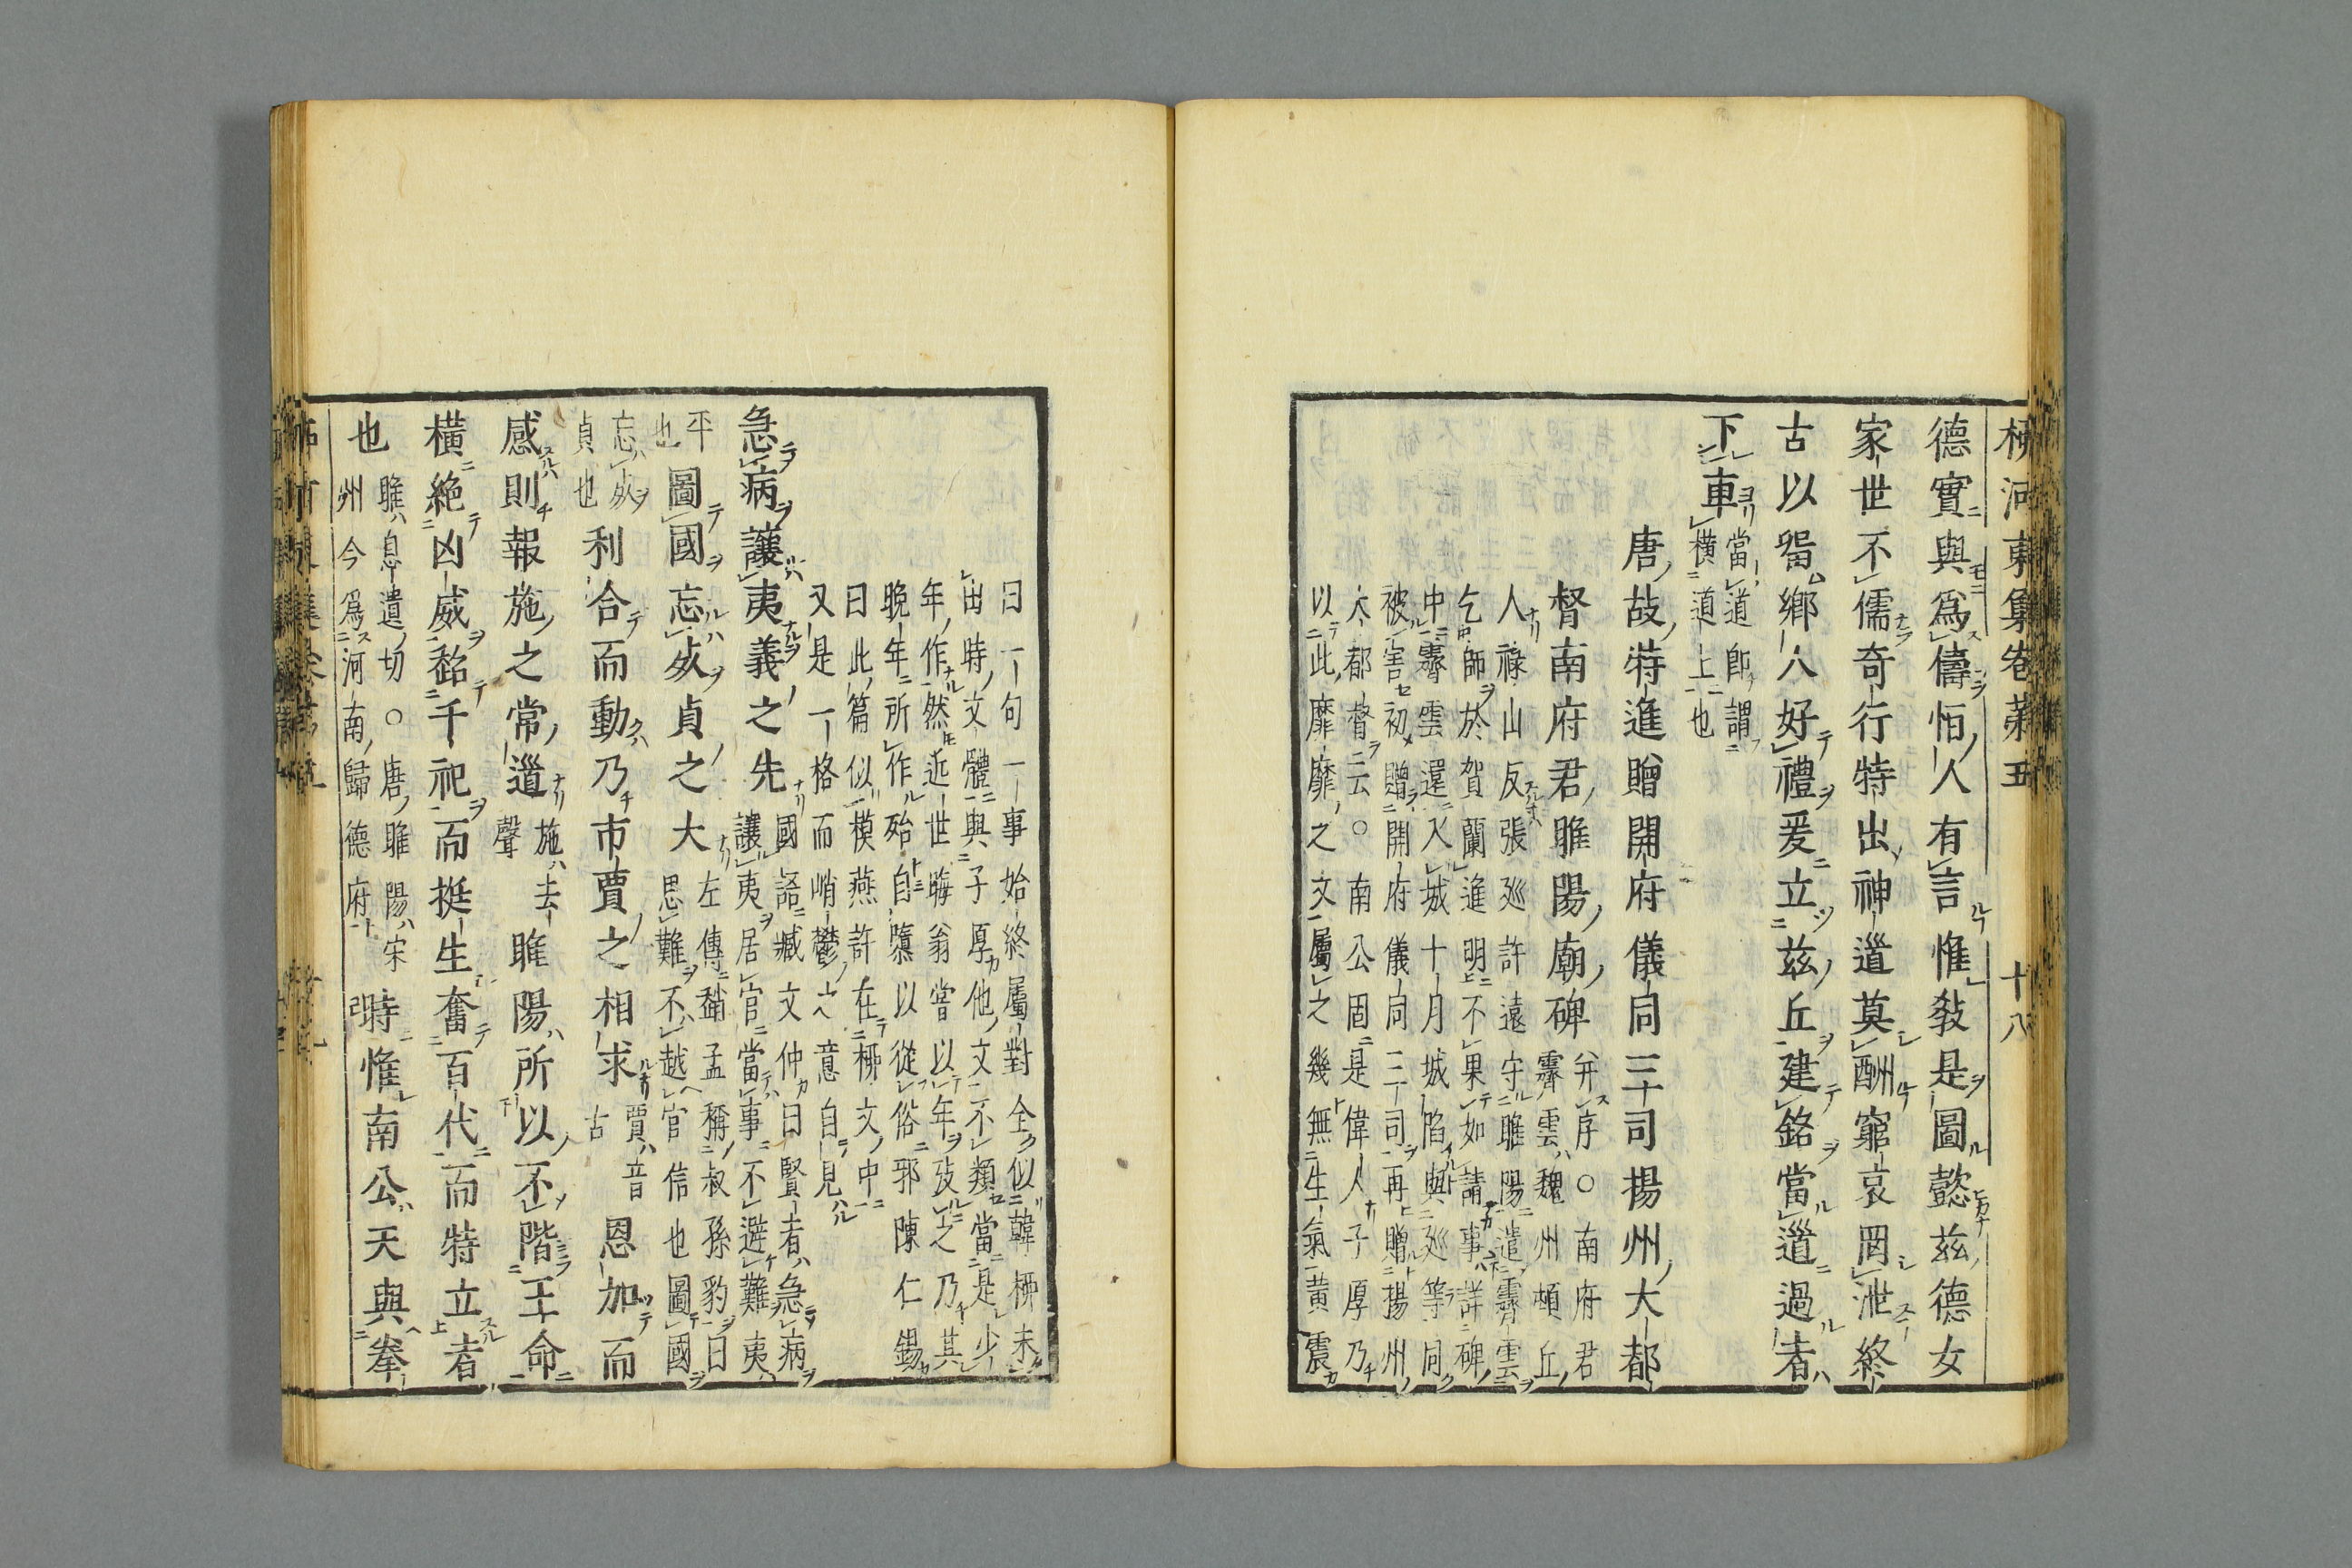 柳河東集卷第五　十八
德實與爲儔怕人有言惟敎是圖懿兹德女
家世不儒奇行特出神道莫酬窮哀罔泄終
古以留鄉人好禮爰立兹丘建銘當道過者
下車
當道卽謂
横道上也
唐故特進贈開府儀同三司揚州大都
督南府君睢陽廟碑
并序○南府君
霽雲魏州頓丘
人祿山反張廵許遠守睢陽遣霽雲
乞師於賀蘭進明不果如請事詳碑
中霽雲還入城十月城陷與廵等同
被害初贈開府儀同三司再贈揚州
大都督云○南公固是偉人子厚乃
以此靡靡之文屬之幾無生氣黄震
曰一句一事始終屬對全似韓柳未
出時文體與子厚他文不類當是少
年作然近世晦翁嘗以年攷之乃其
晚年所作殆自隳以從俗邪陳仁錫
曰此篇似模燕許在柳文中
又是一格而峭鬱之意自見
急病讓夷義之先
國語臧文仲曰賢者急病
讓夷居官當事不避難夷
平
也
圖國忘㱠貞之大
左傳趙孟稱叔孫豹曰
思難不越官信也圖國
忘㱠
貞也
利合而動乃市賈之相求
賈音
古
恩加而
感則報施之常道
施去
聲
睢陽所以不階王命
横絶凶威超千祀而挺生奮百代而特立者
也
睢息遺切○唐睢陽宋
州今爲河南歸德府
時惟南公天與拳